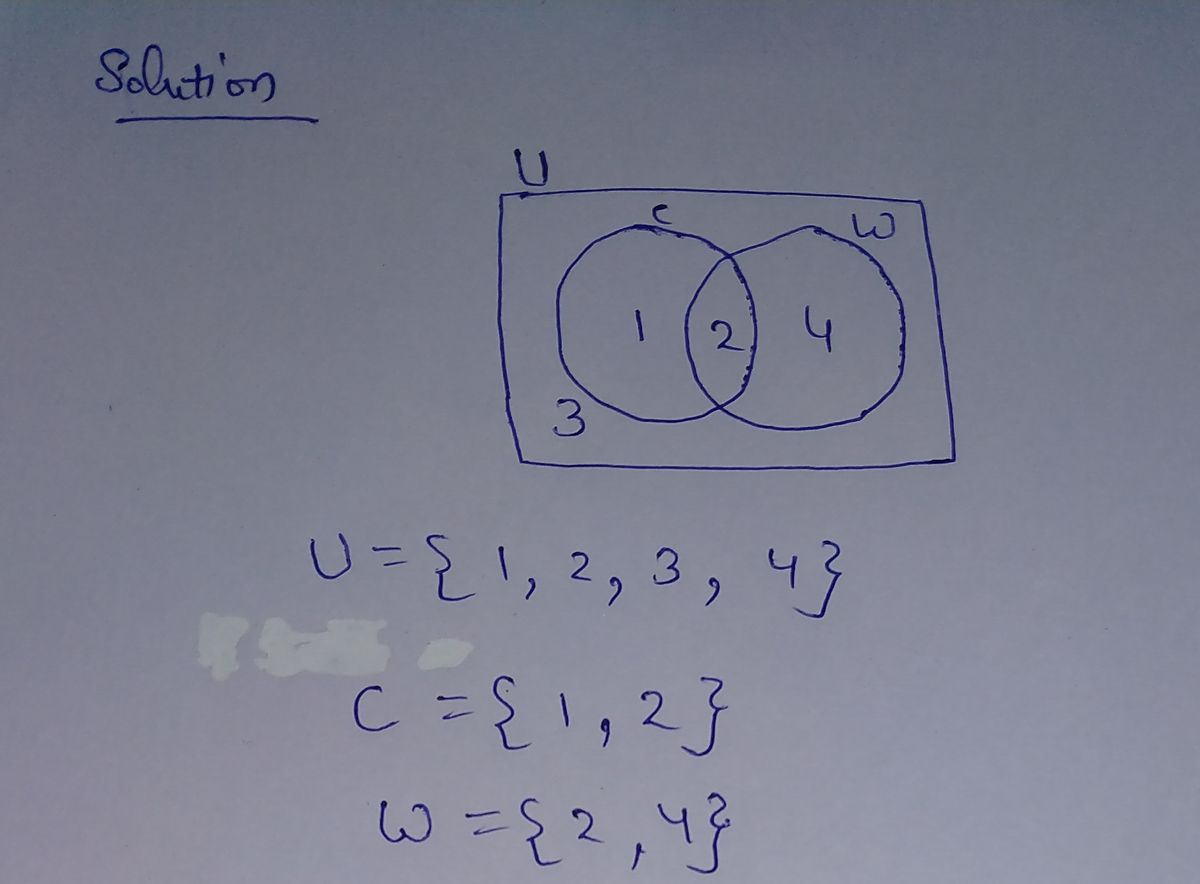 Solution
U
C W
1 2 4
3
U = { 1, 2, 3, 4}
C = { 1, 2}
W = { 2, 4}